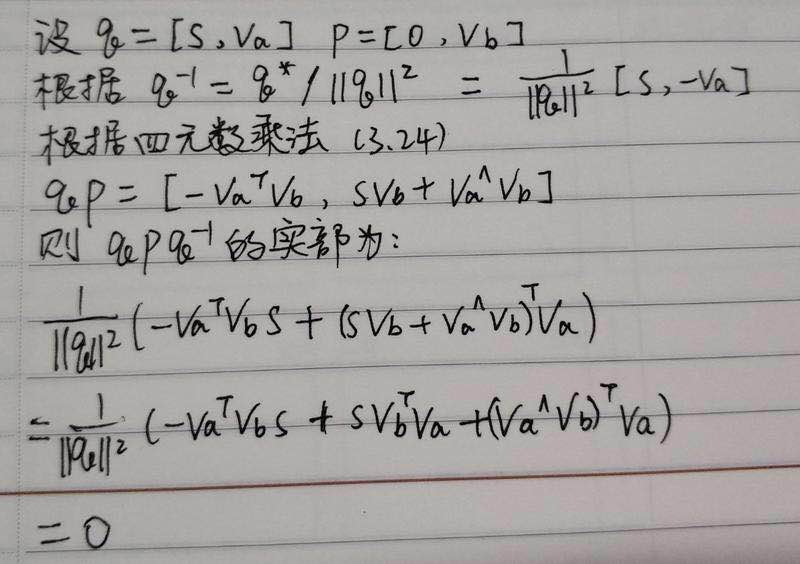 设 q = [s, Va] P = [0, Vb]
根据 q⁻¹ = q* / ||q||² = 1/||q||² [s, -Va]
根据四元数乘法 (3.24)
qP = [-VaᵀVb, sVb + Va^Vb]
则 qPq⁻¹ 的实部为:
1/||q||² (-VaᵀVb s + (sVb + Va^Vb)ᵀVa)
= 1/||q||² (-VaᵀVb s + sVbᵀVa + (Va^Vb)ᵀVa)
= 0